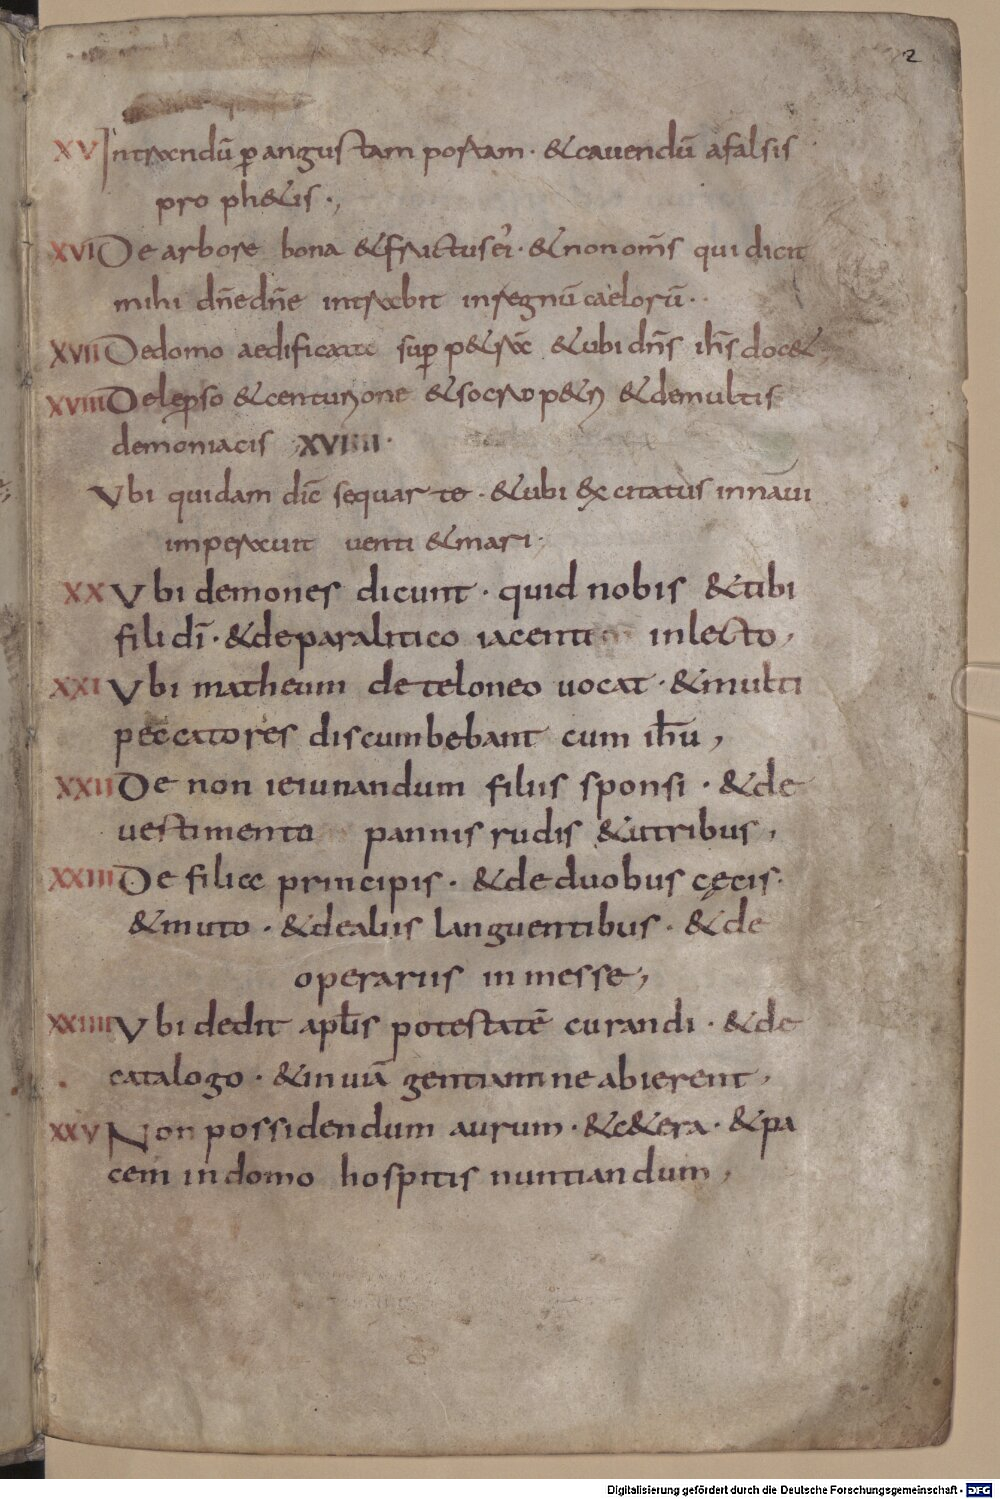 2
XV Intrandū ꝑ angustam portam · & cauendū a falsis
pro ph&is ·,
XVI De arbore bona & fructus ei · & non om̄s qui dicit
mihi dn̄e dn̄e intrabit in regnū caelorū ·
XVII De domo aedificata suꝑ p&rā & ubi dn̄s ih̄s doc&
XVIII De leproso & centurione & socru p&ri & de multis
demoniacis XVIIII ·
Vbi quidam dic̄ sequar te · & ubi excitatus in naui
imperauit uenti & mari ·
XX Vbi demones dicunt · quid nobis & tibi
fili dī · & de paralitico iacenti in lecto,
XXI Vbi matheum de teloneo uocat · & multi
peccatores discumbebant cum ih̄u ,
XXII De non ieiunandum filiis sponsi · & de
uestimento pannis rudis & utribus ,
XXIII De filia principis · & de duobus cęcis ·
& muto · & de aliis languentibus · & de
operariis in messe ,
XXIIII Vbi dedit apl̄is potestatē curandi · & de
catalogo · & in uiā gentium ne abierent ,
XXV Non possidendum aurum · & c&era · & pa
cem in domo hospitis nuntiandum ,
Digitalisierung gefördert durch die Deutsche Forschungsgemeinschaft - DFG